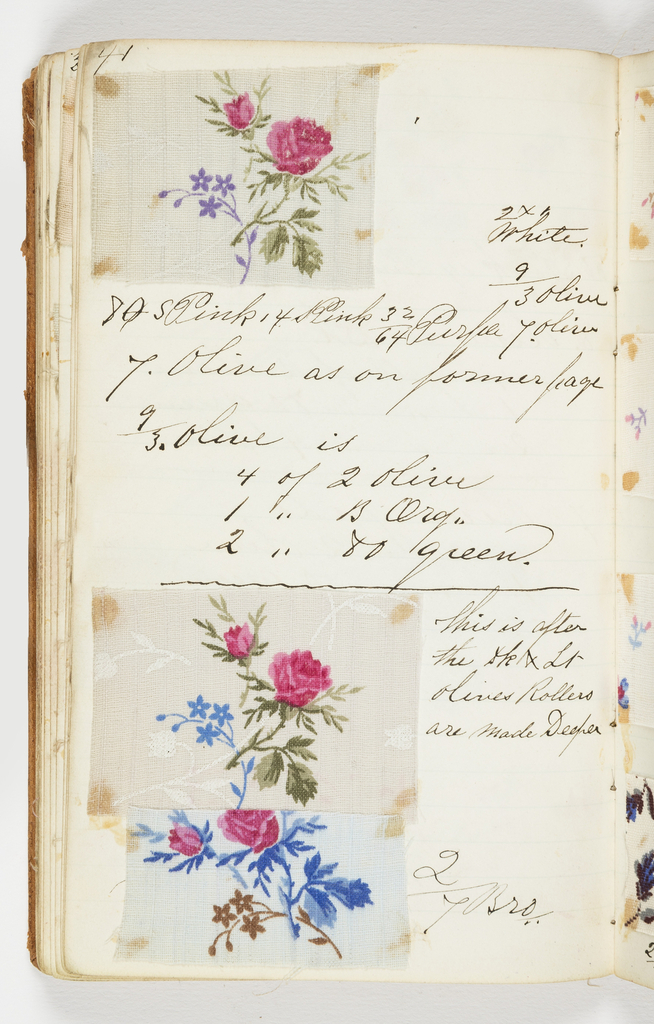 41
2x"
White.
9/3 Olive
80 S Pink 14 S Pink 32/64 Purple 7. olive
7. Olive as on former page
9/3. Olive is
4 of 2 olive
1 " B Org"
2 " 80 green.
This is after
the Dk & Lt
olives Rollers
are made Deeper
2/7 Bro"